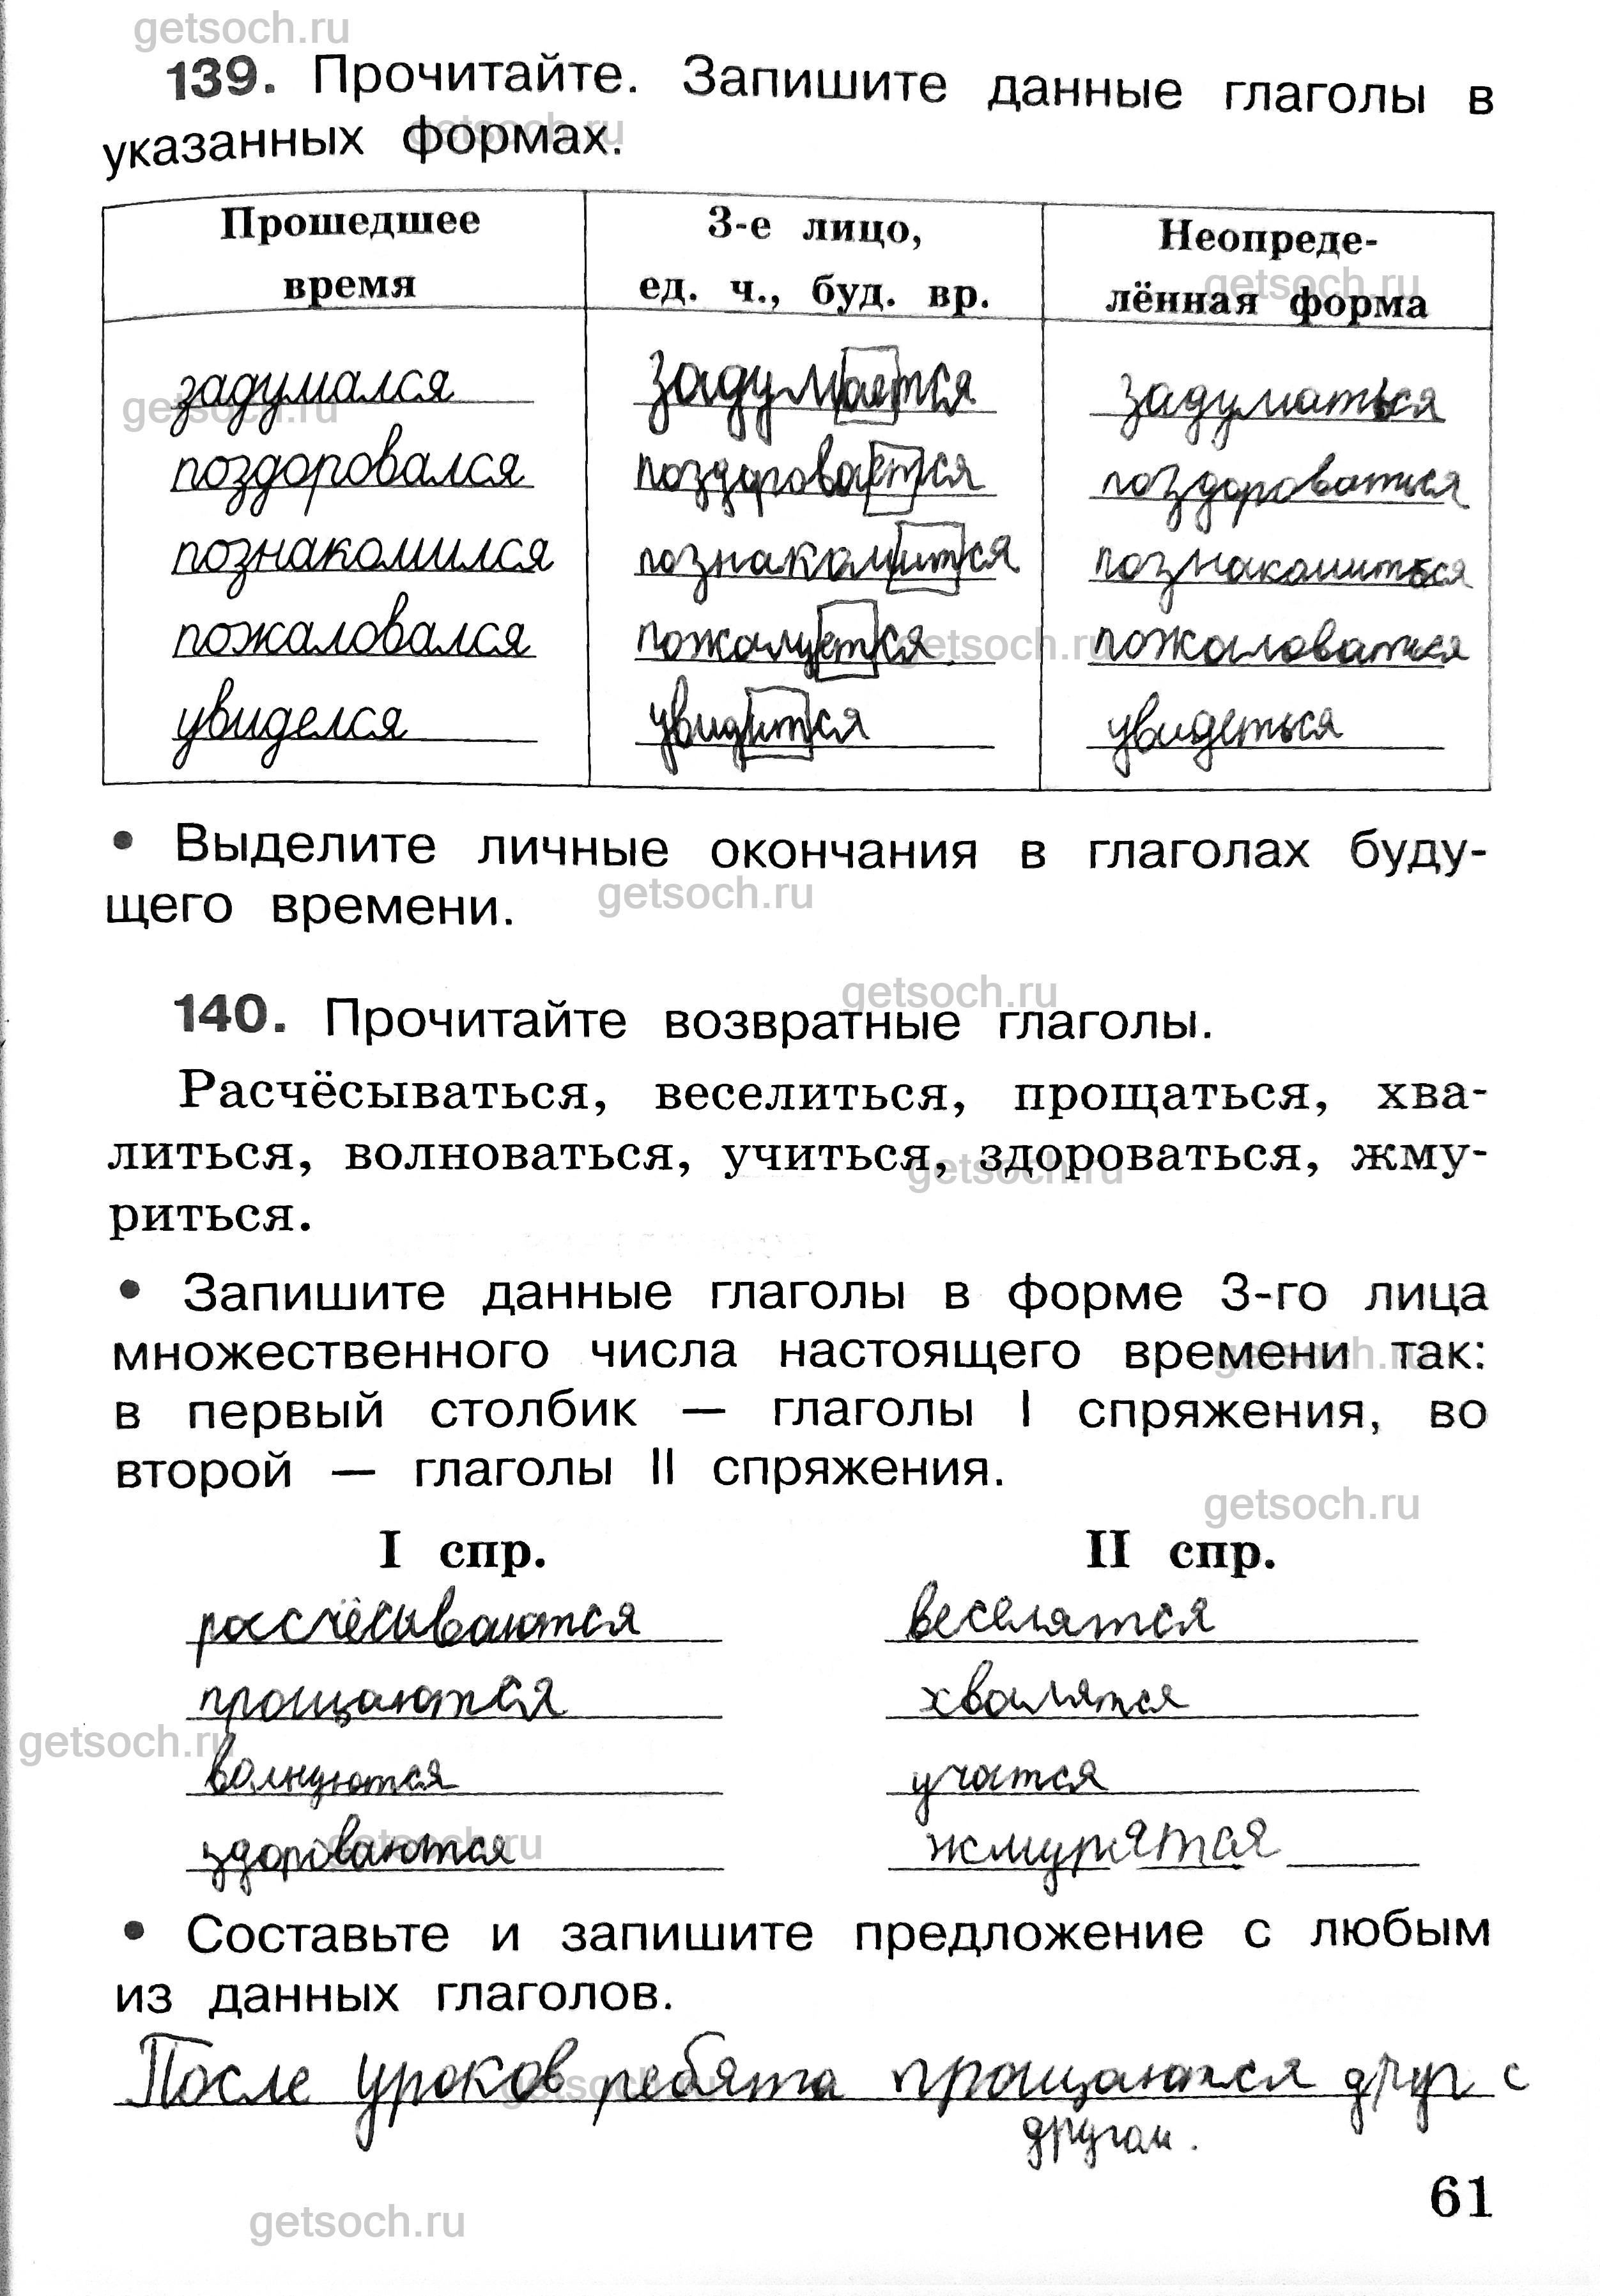 getsoch.ru
139. Прочитайте. Запишите данные глаголы в
указанных формах.
getsoch.ru
Прошедшее время
3-е лицо, ед. ч., буд. вр.
Неопреде- лённая форма
getsoch.ru
задумался задумается задуматься
getsoch.ru
поздоровался поздоровается поздороваться
познакомился познакомится познакомиться
пожаловался пожалуется пожаловаться
getsoch.ru
увиделся увидится увидеться
• Выделите личные окончания в глаголах буду-
щего времени.
getsoch.ru
getsoch.ru
140. Прочитайте возвратные глаголы.
Расчёсываться, веселиться, прощаться, хва-
литься, волноваться, учиться, здороваться, жму-
getsoch.ru
риться.
• Запишите данные глаголы в форме 3-го лица
множественного числа настоящего времени так:
getsoch.ru
в первый столбик — глаголы I спряжения, во
второй — глаголы II спряжения.
getsoch.ru
I спр. II спр.
рассчёсываются веселятся
прощаются хвалятся
getsoch.ru
волнуются учатся
здороваются жмурятся
getsoch.ru
• Составьте и запишите предложение с любым
из данных глаголов.
После уроков ребята прощаются друг с
getsoch.ru
другом.
61
getsoch.ru